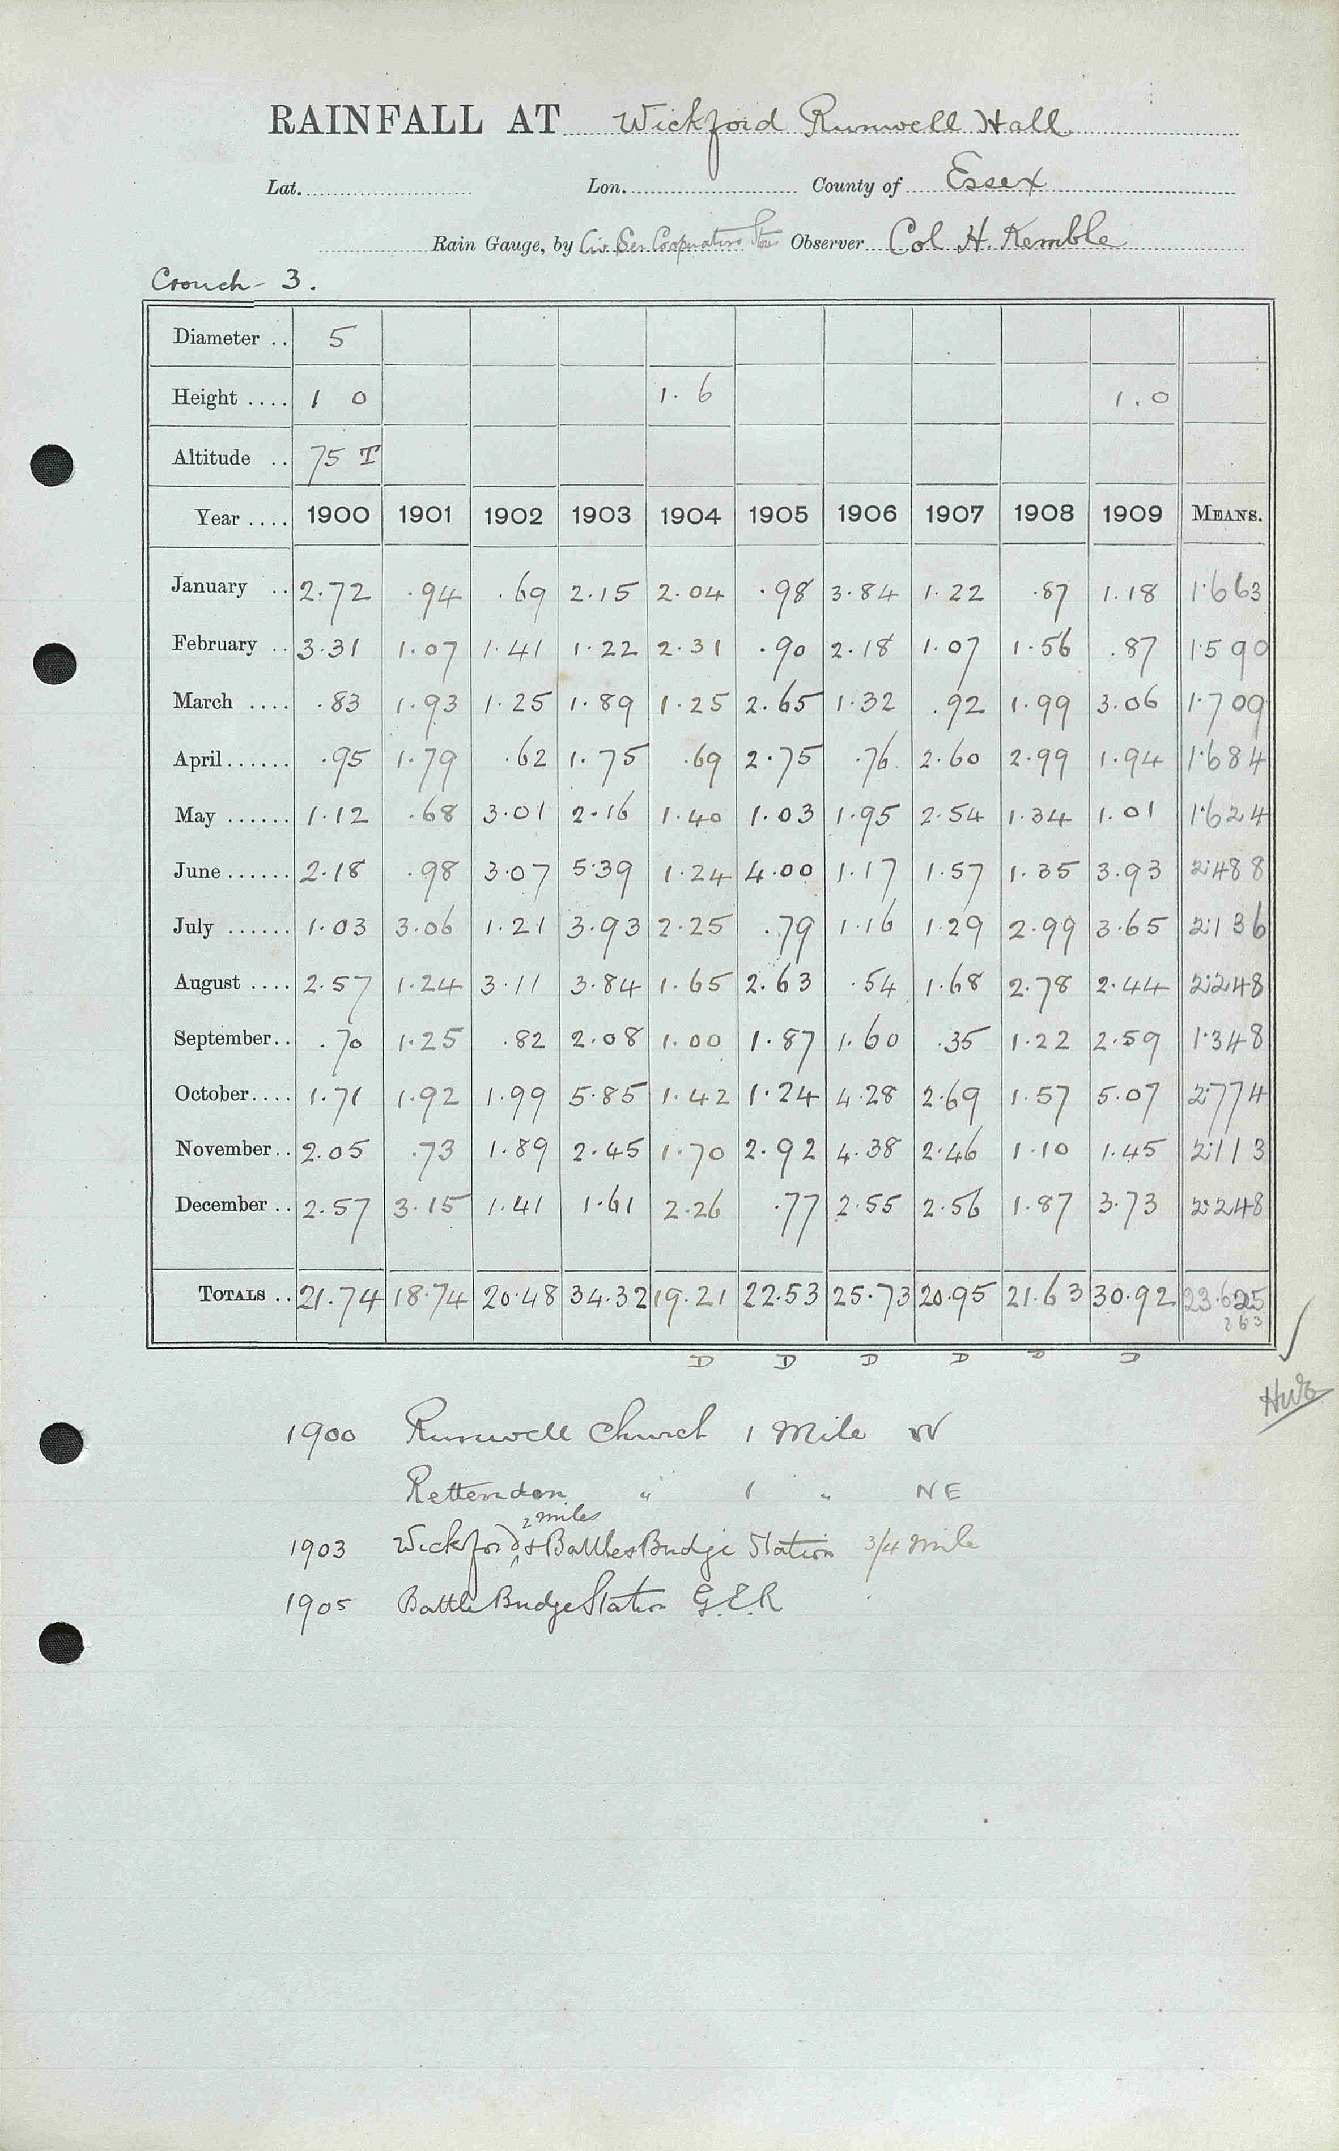 RAINFALL AT Wickford Runwell Hall
Lat. Lon. County of Essex
Rain Gauge, by Civ Ser Cooperative Stores Observer Col H. Kemble
Crouch - 3.
Diameter .. 5
Height .... 1 0 1.6 1.0
Altitude .. 75 T
Year .... 1900 1901 1902 1903 1904 1905 1906 1907 1908 1909 MEANS.
January .. 2.72 .94 .69 2.15 2.04 .98 3.84 1.22 .87 1.18 1.663
February .. 3.31 1.07 1.41 1.22 2.31 .90 2.18 1.07 1.56 .87 1.590
March .... .83 1.93 1.25 1.89 1.25 2.65 1.32 .92 1.99 3.06 1.709
April ...... .95 1.79 .62 1.75 .69 2.75 .76 2.60 2.99 1.94 1.684
May ...... 1.12 .68 3.01 2.16 1.40 1.03 1.95 2.54 1.34 1.01 1.624
June ...... 2.18 .98 3.07 5.39 1.24 4.00 1.17 1.57 1.35 3.93 2.488
July ...... 1.03 3.06 1.21 3.93 2.25 .79 1.16 1.29 2.99 3.65 2.136
August .... 2.57 1.24 3.11 3.84 1.65 2.63 .54 1.68 2.78 2.44 2.248
September.. .70 1.25 .82 2.08 1.00 1.87 1.60 .35 1.22 2.59 1.348
October.... 1.71 1.92 1.99 5.85 1.42 1.24 4.28 2.69 1.57 5.07 2.774
November.. 2.05 .73 1.89 2.45 1.70 2.92 4.38 2.46 1.10 1.45 2.113
December .. 2.57 3.15 1.41 1.61 2.26 .77 2.55 2.56 1.87 3.73 2.248
TOTALS .. 21.74 18.74 20.48 34.32 19.21 22.53 25.73 20.95 21.63 30.92 23.625
263
D D D D D D
1900 Runwell Church 1 Mile W
Rettendon " 1 " NE
2 miles
1903 Wickford & Battles Bridge Station 3/4 mile
1905 Battle Bridge Station G.E.R